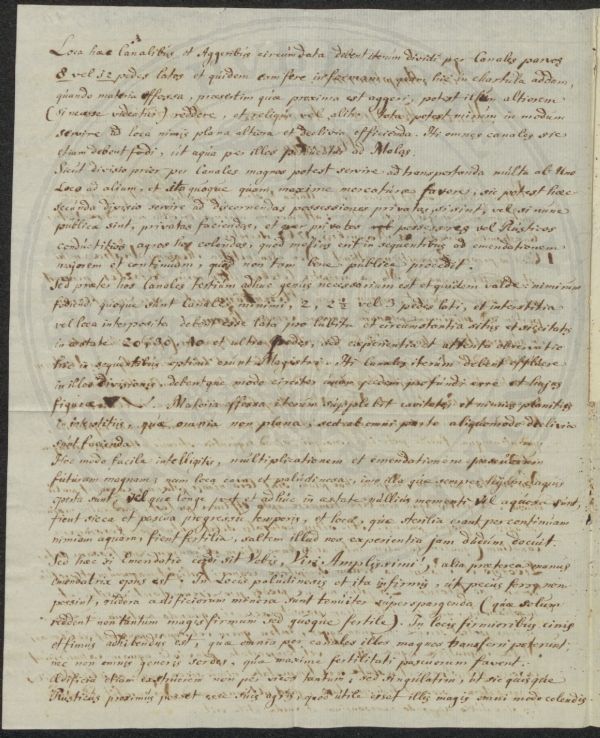 Loca haec Canalibus et Aggeribus circumdata debent iterum dividi per Canales parvos
8 vel 12 pedes latos et quidem
quando materia effossa, praesertim quae proxima est aggeri, potest illum altiorem
(si necesse videntur) reddere, et reliqua vel alito tota potest mirum in modum
servire ad loca nimis plana altiora et declivia efficienda. Hi omnes canales sic
etiam debent fodi, ut aqua per illos ad Molas.
Sicut divisio prior per Canales magnos potest servire ad transportanda multa ab Uno
Loco ad alium, et ita quoque quam maxime mercaturae favere, sic potest haec
secunda divisio servire ad discernendas possessiones privatas, si sint, vel si nunc
publica sint, privatas faciendas, et per privatos possessores vel Rusticos
conductitios, agros hos colendos, quod melius erit in sequentibus ad emendationem
majorem et continuam, quae non tam bene publice procedit.
Sed praeter hos Canales tertium adhuc genus necessarium est et quidem valde: nimirum
fodiendi quoque sunt Canales minimi, 2, 2½ vel 3 pedes lati, et interstitia
vel loca interposita debent esse lata pro lubitu et circumstantia sitûs et siccitatis
in aestate 20, 30, 40 et ultra pedes, sed experientia et attenta observatio
hic in sequentibus optimi erunt Magistri. Hi Canales iterum debent effluere
in illos divisionis, debentque modo circiter unum pedem profundi esse et hujus
figurae. Materia effossa iterum supplebit cavitates et minus planities
in interstitiis, quae omnia non plana, sed ab omni parte aliquomodo declivia
sunt facienda.
Hoc modo facile intelligitis, multiplicationem et emendationem pascuorum
futuram magnam; nam loca cava et paludinosa, imo illa quae semper sub aquis
posita sunt, vel quae longe post et adhuc in aestate nullius momenti vel aquosa sunt,
fient sicca et pascua progressu temporis, et loca, quae sterilia erant per nimiam
nimiam aquam, fient fertilia, saltem illud nos experientia jam dudum docuit.
Sed haec si Emendatio cordi sit Vobis, Viri Amplissimi, alia praeterea manus
emendatrix opus est; in Locis paludinosis et ita infirmis, ut pecus ferre non
possint, rudera aedificiorum minora sunt tenuiter superspargenda (quae solum
reddent non tantum magis firmum sed quoque fertile). In locis firmioribus cinis
et fimus adhibendus est, quae omnia per canales illos magnos transferri poterunt;
nec non omnis generis sordes, quae maxime fertilitati pascuorum favent.
Aedificia etiam exstruerem non per vicos tantum, sed singulatim, ut sic quisque
Rusticus proximus posset esse suis agris, quod utile esset illis magis suo modo colendis